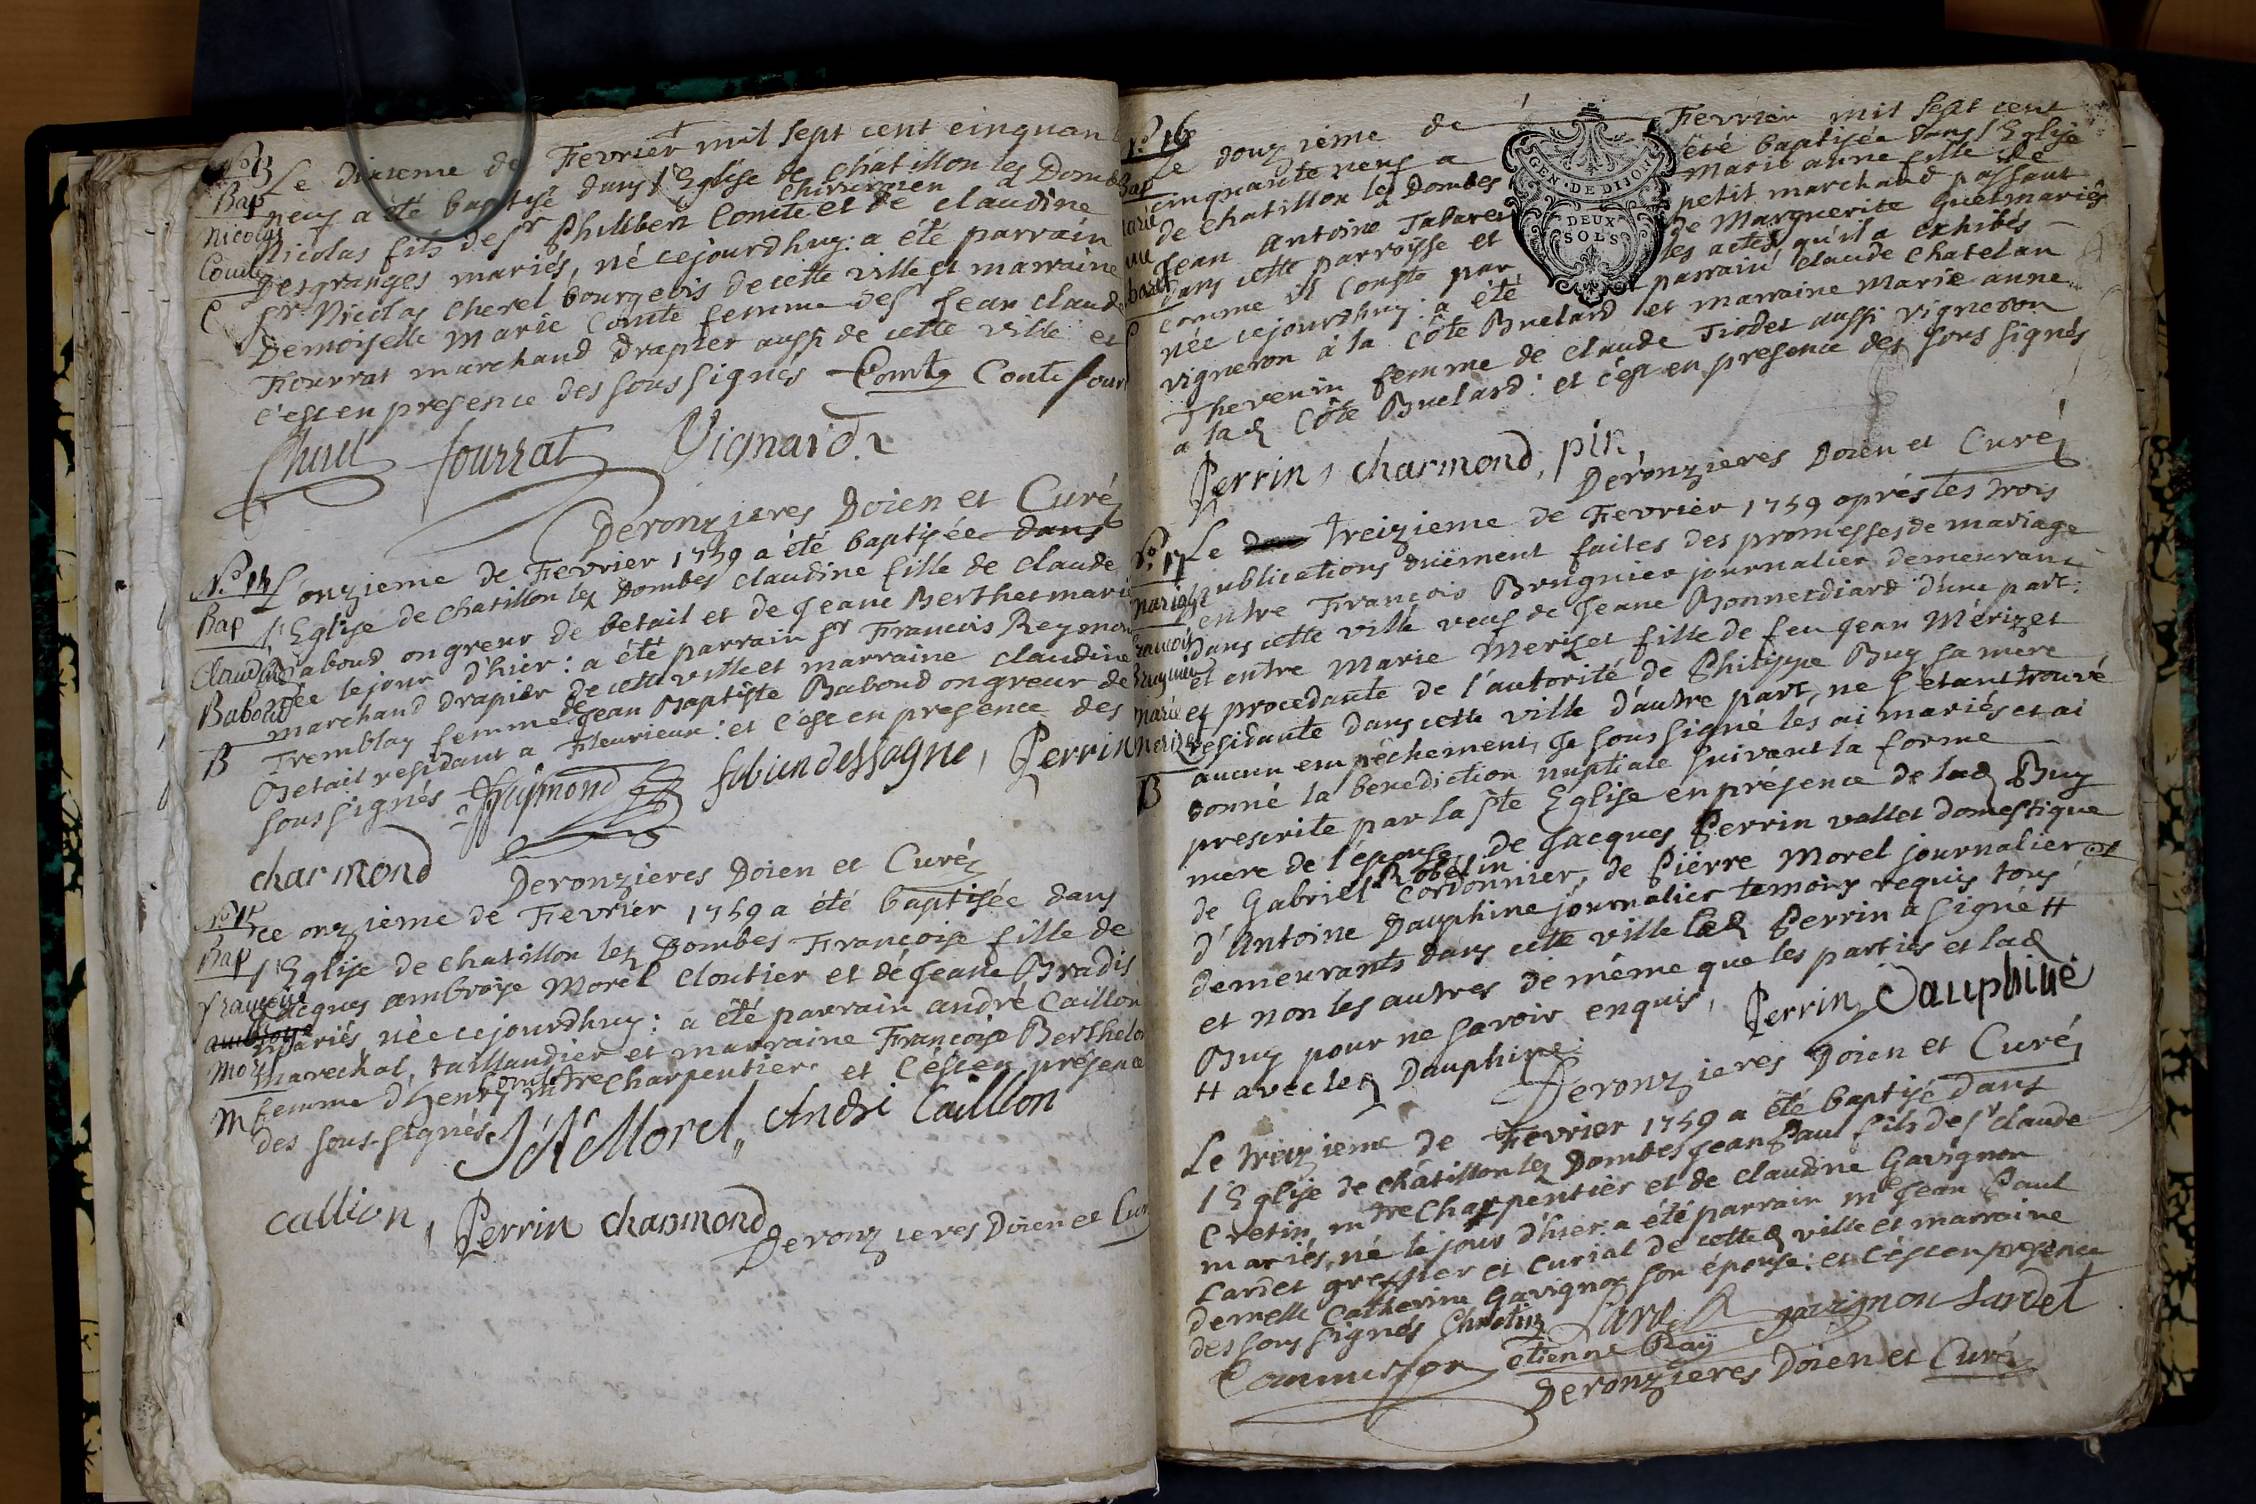 No 13
Bap
Nicolas
Comte
C
Le dixieme de Fevrier mil sept cent cinquan
neuf a été baptisé dans l'Eglise de chatillon les Domb
Nicolas fils de sr Philibert Comte chirurgien et de claudine
Desgranges mariés, né cejourdhuy: a été parrain
sr. Nicolas cherel bourgeois de cette ville et marraine
Demoiselle marie Comte femme de sr Jean claude
Fourrat marchand Drapier aussi de cette ville et
c'est en presence des soussignés Comte Comte four
Fourrat Vignard
Deronzieres Doien et Curé
No 14
Bap
Claudine
Baboud
B
L'onzieme de Fevrier 1759 a été baptisée dans
l'Eglise de chatillon lez Dombes claudine fille de claude
Baboud ongreur de betail et de Jeane Berthet marié
née le jour d'hier: a été parrain sr Francois Reymon
marchand drapier de cette ville et marraine claudine
Tremblay femme de Jean Baptiste Baboud ongreur de
Betail residant a Fleurieux: et c'est en presence des
soussignés Reymond fabien dessagne, Perrin
charmond
Deronzieres Doien et Curé
No 15
Bap
Francoise
ambroise
Morel
M
Ce onzieme de Fevrier 1759 a été baptisée dans
l'Eglise de chatillon lez Dombes Françoise fille de
Jacques ambroise Morel Cloutier et de Jeane Bradis
mariés, née cejourdhuy: a été parrain andré Caillon
marechal, taillandier et marraine Françoise Berthelo
femme d'henry Comte mtre Charpentier et c'est en présence
des sous-signés J A Morel, André Caillion
callion, Perrin charmond
Deronzieres Doien et Cur
No. 16
Bap
Le douzième de Fevrier mil sept cent
cinquante neuf a été baptisée dans l'Eglise
de chatillon lez Dombes Marie anne fille de
Jean Antoine Tabaret petit marchand passant
dans cette parroisse et de Marguerite Guel mariés
comme il conste par les actes qu'il a exhibés
née cejourdhuy: a été parrain claude Chatelan
vigneron à la Côte Buelard et marraine Marie anne
Thevenin femme de claude Tiodet aussi vigneron
a lad Côte Buelard: et c'est en presence des sous signés
Perrin, charmond, pin,
Deronzieres Doien et Curé
No. 17
mariage
Francois
Brugnier
et
Marie
Merizet
B
Le treizieme de Fevrier 1759 après les trois
publications duëment faites des promesses de mariage
entre François Brugnier journalier demeurant
dans cette ville veuf de Jeane Bonnetdiard d'une part:
et entre Marie Merizet fille de feu Jean Mérizet
et procedante de l'autorité de Philippe Buy sa mere
residante dans cette ville d'autre part, ne s'étant trouvé
aucun empêchement, Je soussigné les ai mariés et ai
donné la benediction nuptiale suivant la forme
prescrite par la ste Eglise en présence de lad Buy
mere de l'épouse, de Jacques Perrin vallet domestique
de Gabriel Robelin Cordonnier, de Pierre Morel journalier et
d'Antoine Dauphine journalier temoins requis tous
demeurants dans cette ville led Perrin a signé #
et non les autres de même que les parties et lad
Buy pour ne savoir enquis, Perrin Dauphine
# avec led Dauphine.
Deronzieres Doien et Curé
Le treizieme de Fevrier 1759 a été baptisé dans
l'Eglise de châtillon lez Dombes Jean Paul fils de sr claude
Cretin mtre Charpentier et de claudine Gavignon
mariés, né le jour d'hier: a été parrain me Jean Paul
Lardet greffier et curial de cette ville et marraine
demelle Catherine Gavignon son épouse: et c'est en presence
des soussignés Chretin Lardet gavignon Lardet
Commisson etienne Ray
Deronzieres Doien et Curé
GEN · DE DIJON
DEUX
SOLS